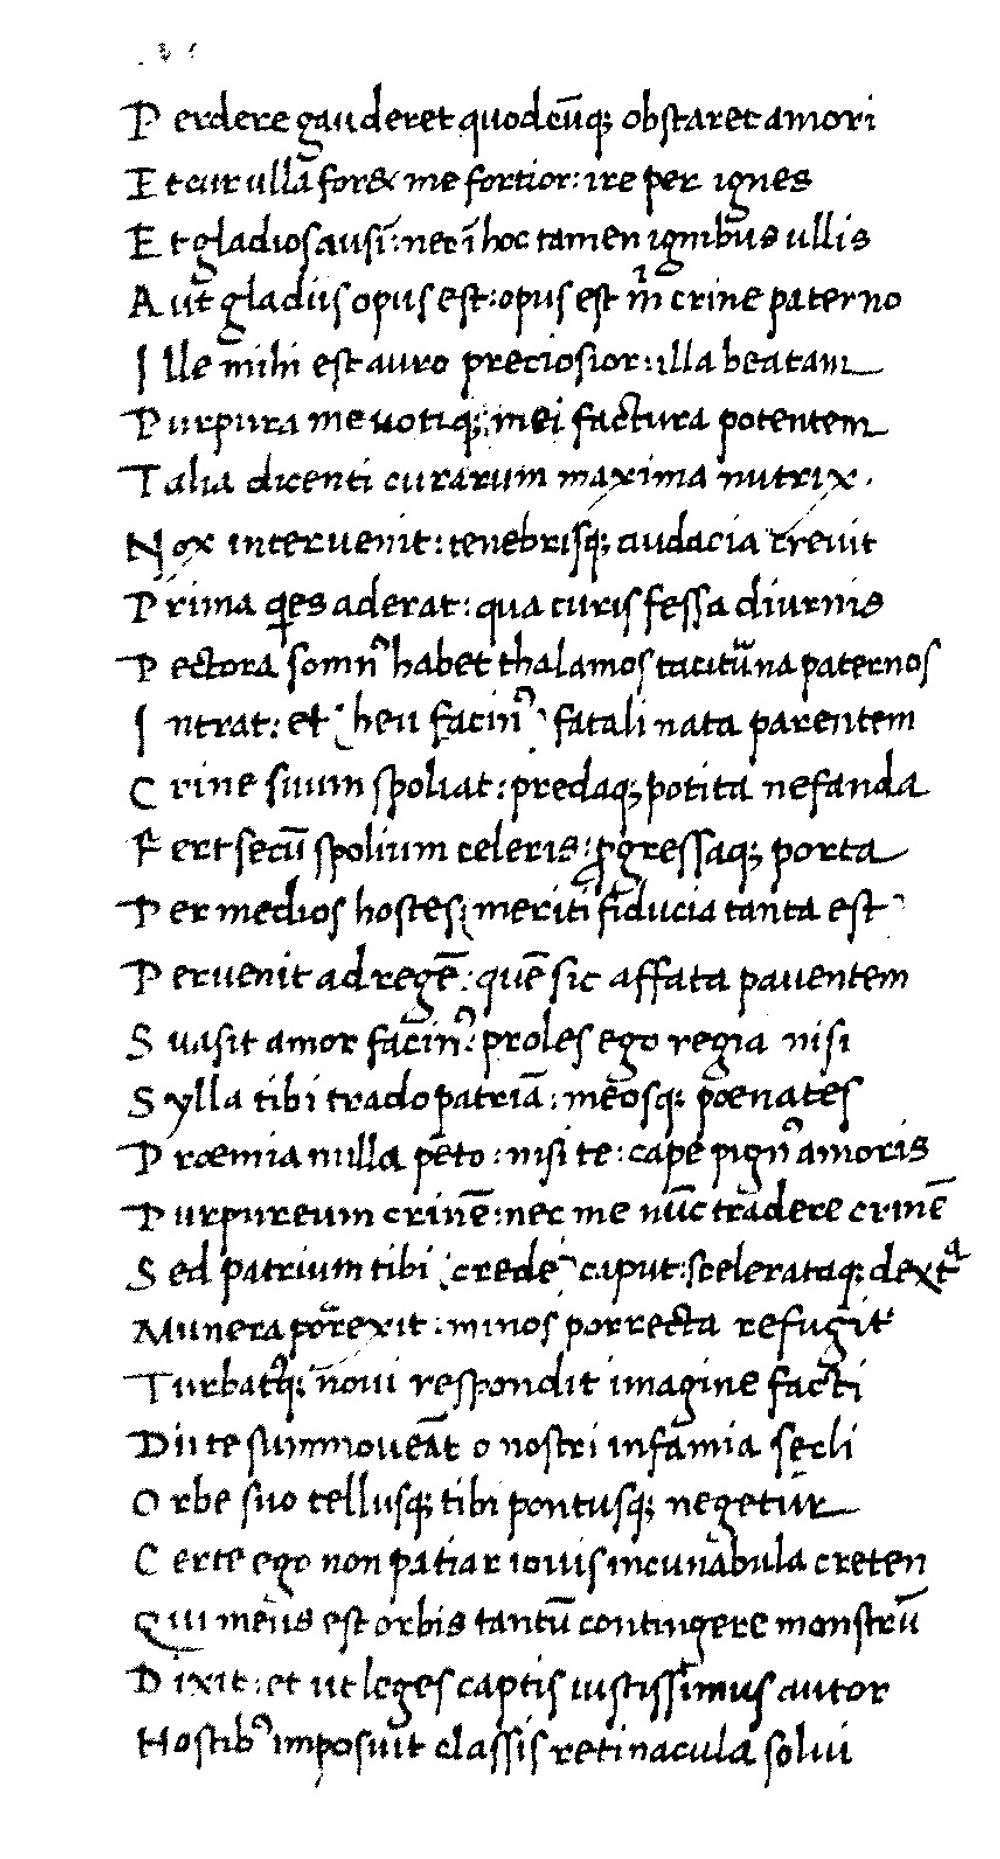 Perdere gauderet quodcūq; obstaret amori
Et cur ullā foret me fortior: ire per ignes
Et gladios ausī: nec ī hoc tamen ignibus ullis
Aut gladiis opus est: opus est m̄ crine paterno
Ille mihi est auro preciosior: illa beatam
Purpura me uotiq; mei factura potentem
Talia dicenti curarum maxima nutrix.
Nox interuenit: tenebrisq; audacia creuit
Prima q̄es aderat: qua curis fessa diurnis
Pectora somnꝰ habet thalamos tacitura paternos
Intrat: et (heu facinꝰ) fatali nata parentem
Crine suum spoliat: predaq; potita nefanda
Fert secū spolium celeris: ꝓgressaq; porta
Per medios hostes (meriti fiducia tanta est)
Peruenit ad regē: quē sic affata pauentem
Suasit amor facinꝰ: proles ego regia nisi
Sylla tibi trado patriā: meosq; pœnates
Prœmia nulla peto: nisi te: cape pignꝰ amoris
Purpureum crinē: nec me nūc tradere crinē
Sed patrium tibi (crede) caput: scelerataq; dextᵃ
Munera porrexit: minos porrecta refugit
Turbatꝰq; noui respondit imagine facti
Dii te summoueāt o nostri infamia secli
Orbe suo tellusq; tibi pontusq; negetur
Certe ego non patiar iouis incunabula creten
Qui meus est orbis tantū contingere monstrū
Dixit: et ut leges captis iustissimus autor
Hostibꝰ imposuit classis retinacula solui